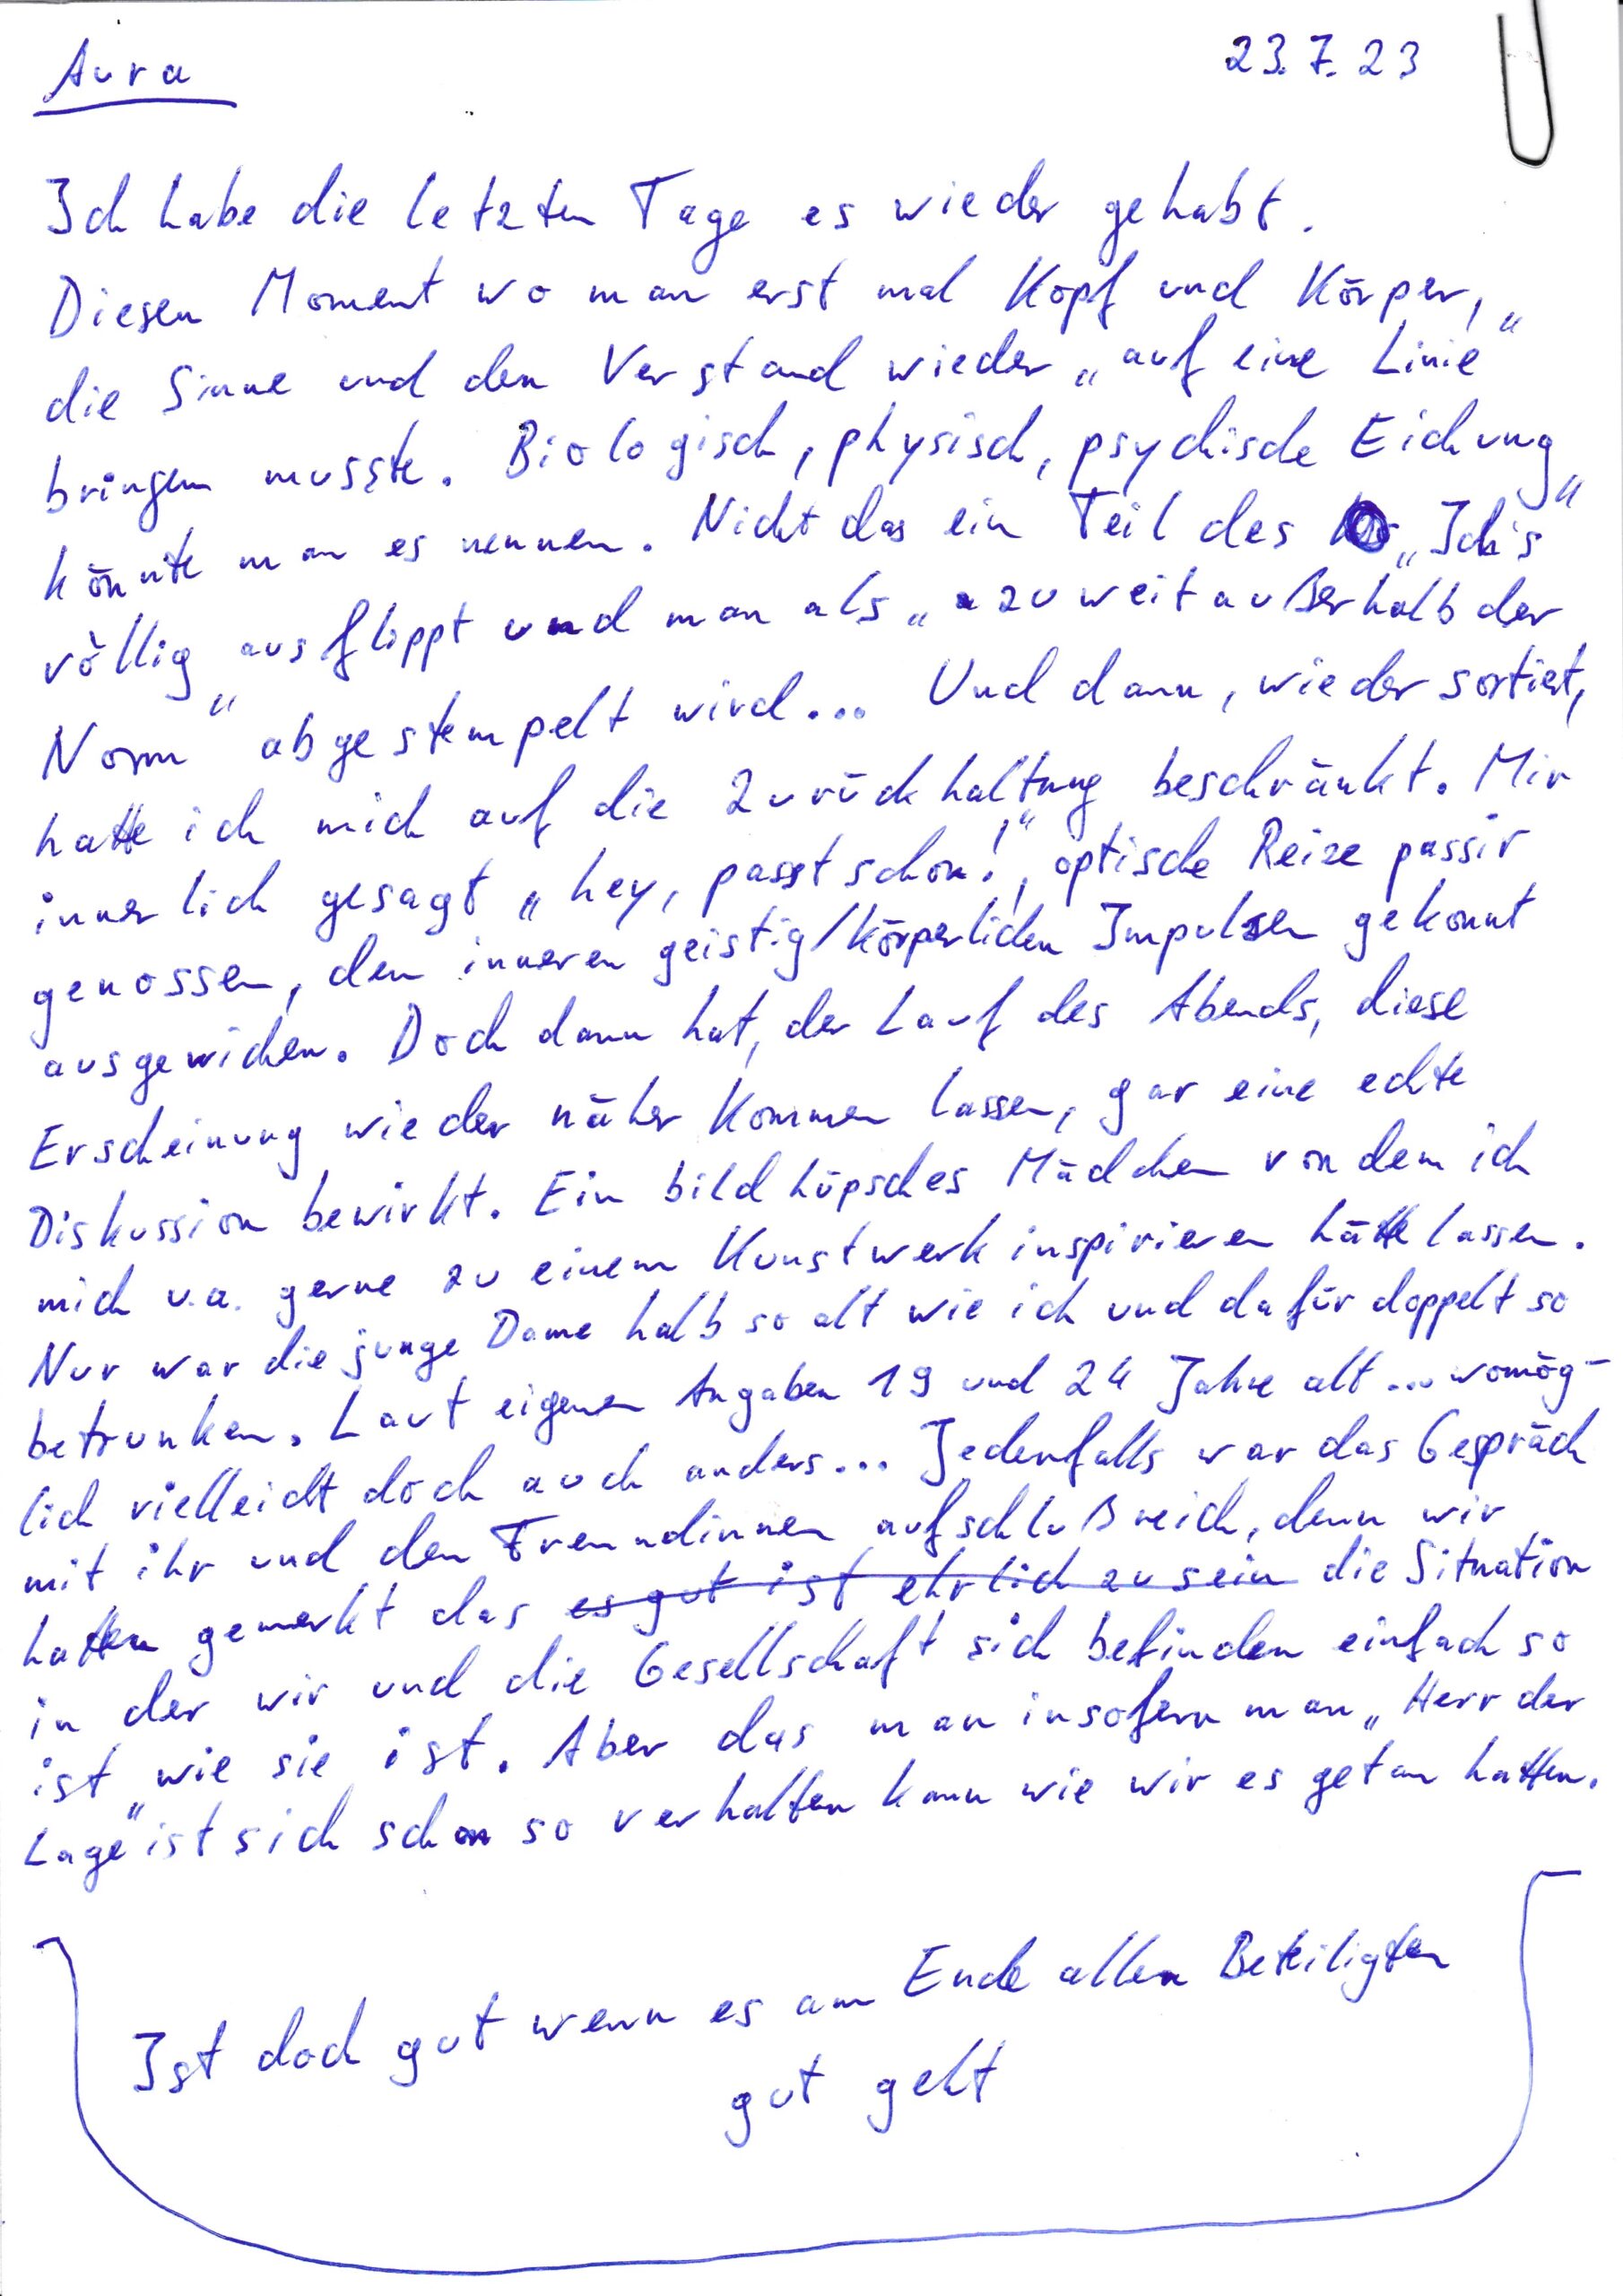 Aura
23.7.23
Ich habe die letzten Tage es wieder gehabt.
Diesen Moment wo man erst mal Kopf und Körper,
die Sinne und den Verstand wieder „auf eine Linie"
bringen musste. Biologisch, physisch, psychische Eichung
könnte man es nennen. Nicht das ein Teil des „Ich's"
völlig ausflippt und man als „zu weit außerhalb der
Norm" abgestempelt wird... Und dann, wieder sortiert,
hatte ich mich auf die Zurückhaltung beschränkt. Mir
innerlich gesagt „hey, passt schon!", optische Reize passiv
genossen, den inneren geistig/körperlichen Impulsen gekonnt
ausgewichen. Doch dann hat, der Lauf des Abends, diese
Erscheinung wieder näher kommen lassen, gar eine echte
Diskussion bewirkt. Ein bildhüpsches Mädchen von dem ich
mich u.a. gerne zu einem Kunstwerk inspirieren hätte lassen.
Nur war die junge Dame halb so alt wie ich und dafür doppelt so
betrunken. Laut eigenen Angaben 19 und 24 Jahre alt... womög-
lich vielleicht doch auch anders... Jedenfalls war das Gespräch
mit ihr und den Freundinnen aufschlußreich, denn wir
hatten gemerkt das es gut ist ehrlich zu sein die Situation
in der wir und die Gesellschaft sich befinden einfach so
ist wie sie ist. Aber das man insofern man „Herr der
Lage" ist sich schon so verhalten kann wie wir es getan hatten.
Ist doch gut wenn es am Ende allen Beteiligten
gut geht